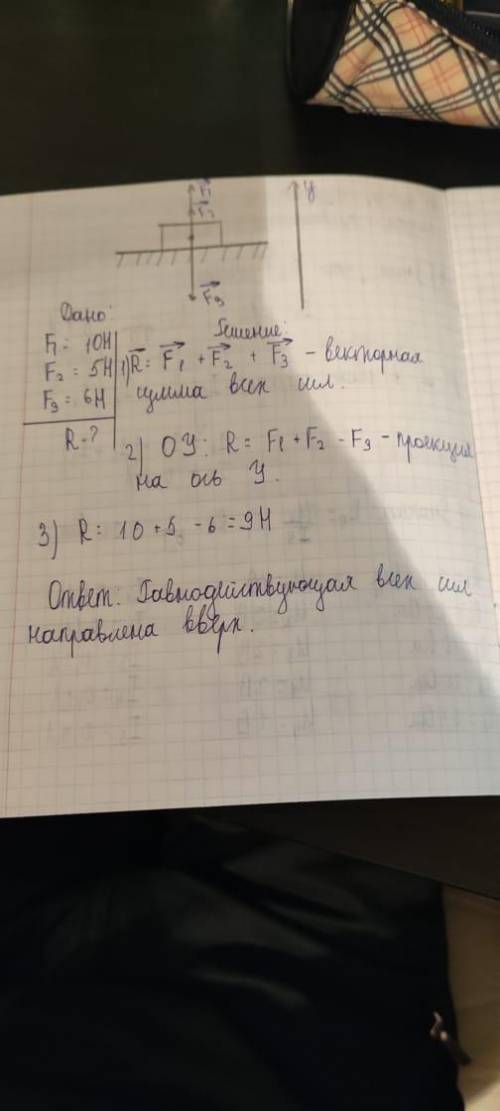 F₁
F₂
y
F₃
Дано:
F₁ = 10Н
F₂ = 5Н
F₃ = 6Н
R - ?
Решение:
1) R = F₁ + F₂ + F₃ - векторная
сумма всех сил.
2) OY: R = F₁ + F₂ - F₃ - проекция
на ось У.
3) R = 10 + 5 - 6 = 9Н
Ответ: Равнодействующая всех сил
направлена вверх.